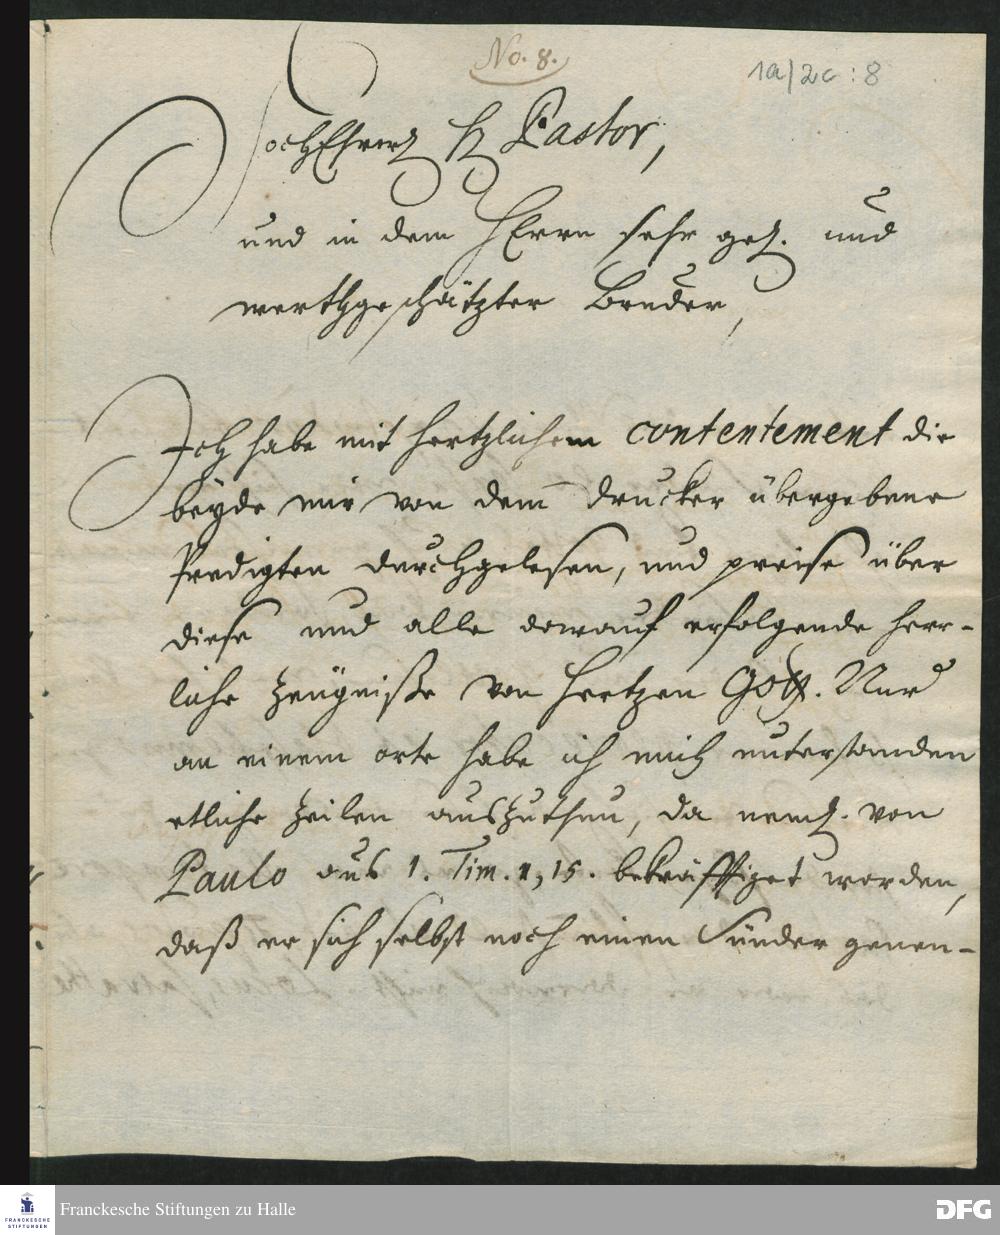 No. 8.
1a/2c : 8
HochEhrw. H. Pastor,
und in dem HErrn sehr gel. und
werthgeschätzter Bruder,
Ich habe mit hertzlichem contentement die
beyde mir von dem drucker übergebene
Predigten durchgelesen, und preise über
diese und alle darauf erfolgende herr-
liche Zeügniße von Hertzen Gott. Nur
an einem orte habe ich mich unterstanden
etliche Zeilen auszuthun, da neml. von
Paulo aus 1. Tim. 1, 15. bekräfftiget worden,
daß er sich selbst noch einen Sünder genen-
FRANCKESCHE STIFTUNGEN
Franckesche Stiftungen zu Halle
DFG